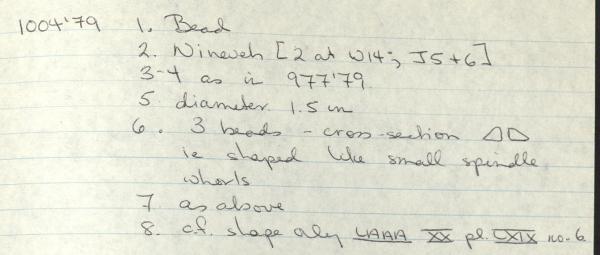 1004'79 1. Bead
2. Nineveh [2 at W14; J5+6]
3-4 as in 977'79
5. diameter 1.5 cm
6. 3 beads - cross-section
ie shaped like small spindle
whorls
7. as above
8. c.f. shape only LAAA XX pl. LXIX no. 6